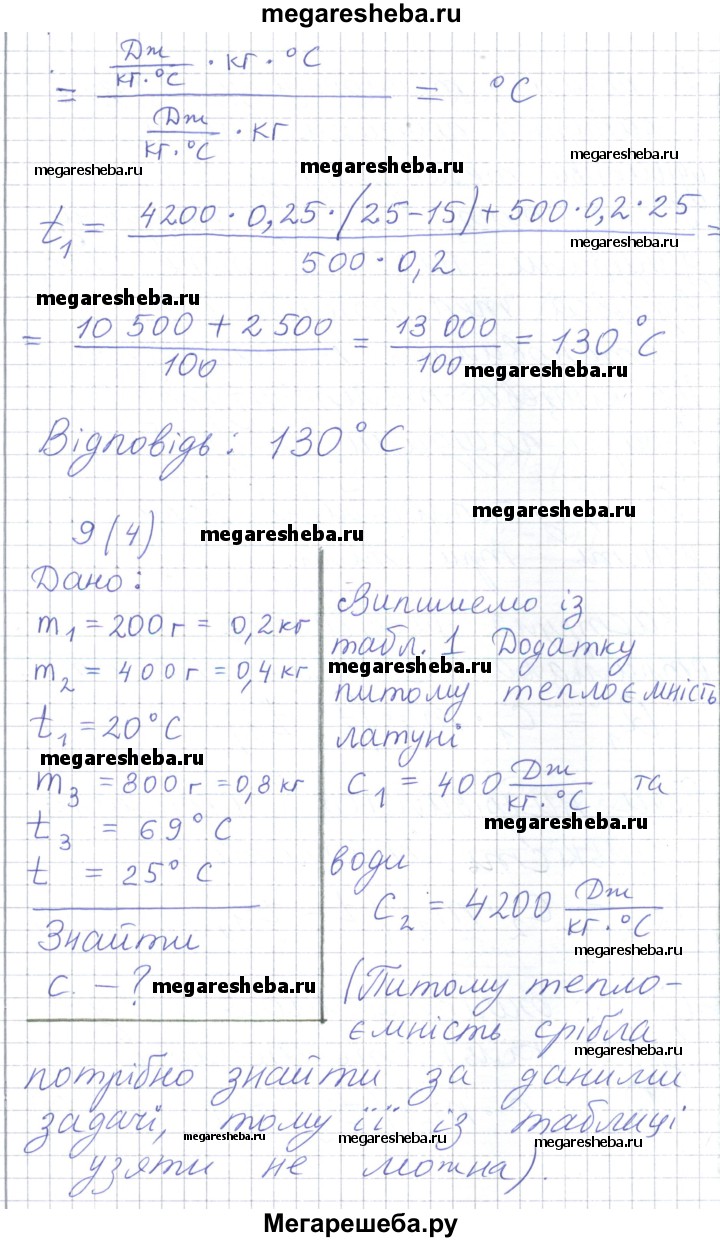 megaresheba.ru
= (Дж/(кг·°С) · кг · °С) / (Дж/(кг·°С) · кг) = °С
megaresheba.ru megaresheba.ru megaresheba.ru
t₁ = (4200 · 0,25 · (25-15) + 500 · 0,2 · 25) / (500 · 0,2) =
megaresheba.ru
megaresheba.ru
= (10 500 + 2 500) / 100 = 13 000 / 100 = 130 °С
megaresheba.ru
Відповідь: 130° С
megaresheba.ru
9 (4) megaresheba.ru
Дано:
m₁ = 200 г = 0,2 кг
m₂ = 400 г = 0,4 кг
t₁ = 20°С
megaresheba.ru
m₃ = 800 г = 0,8 кг
t₃ = 69° С
t = 25° С
Знайти
с. – ? megaresheba.ru
Випишемо із
табл. 1 Додатку
megaresheba.ru
питому теплоємність
латуні
С₁ = 400 Дж/(кг·°С) та
megaresheba.ru
води
С₂ = 4200 Дж/(кг·°С)
megaresheba.ru
(Питому тепло-
ємність срібла
megaresheba.ru
потрібно знайти за даними
задачі, тому її із таблиці
megaresheba.ru megaresheba.ru megaresheba.ru
узяти не можна).
Мегарешеба.ру